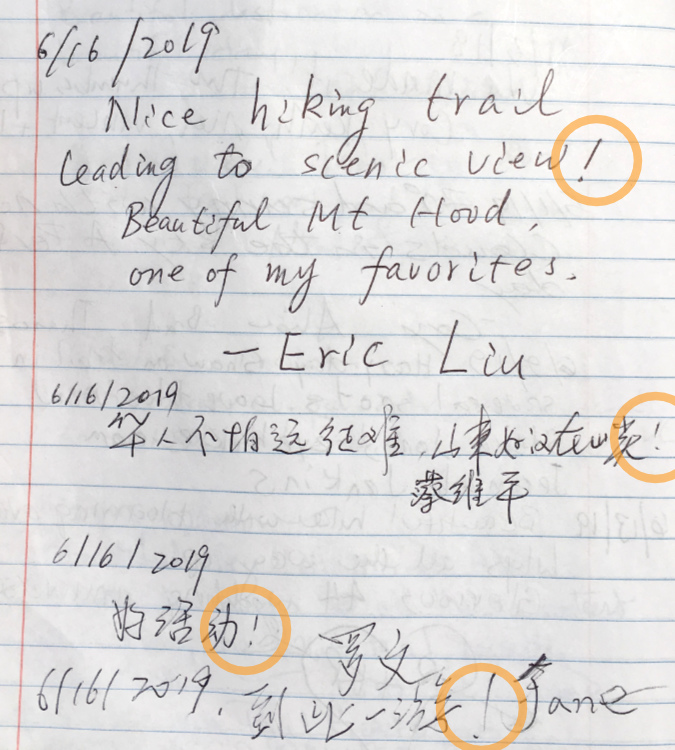 6/16/2019
Nice hiking trail
leading to scenic view!
Beautiful Mt Hood,
one of my favorites.
— Eric Liu
6/16/2019
华人不怕远征难,山东好汉在山巅!
蔡维平
6/16/2019
好活动!
罗文
6/16/2019, 到此一游! 李Jane